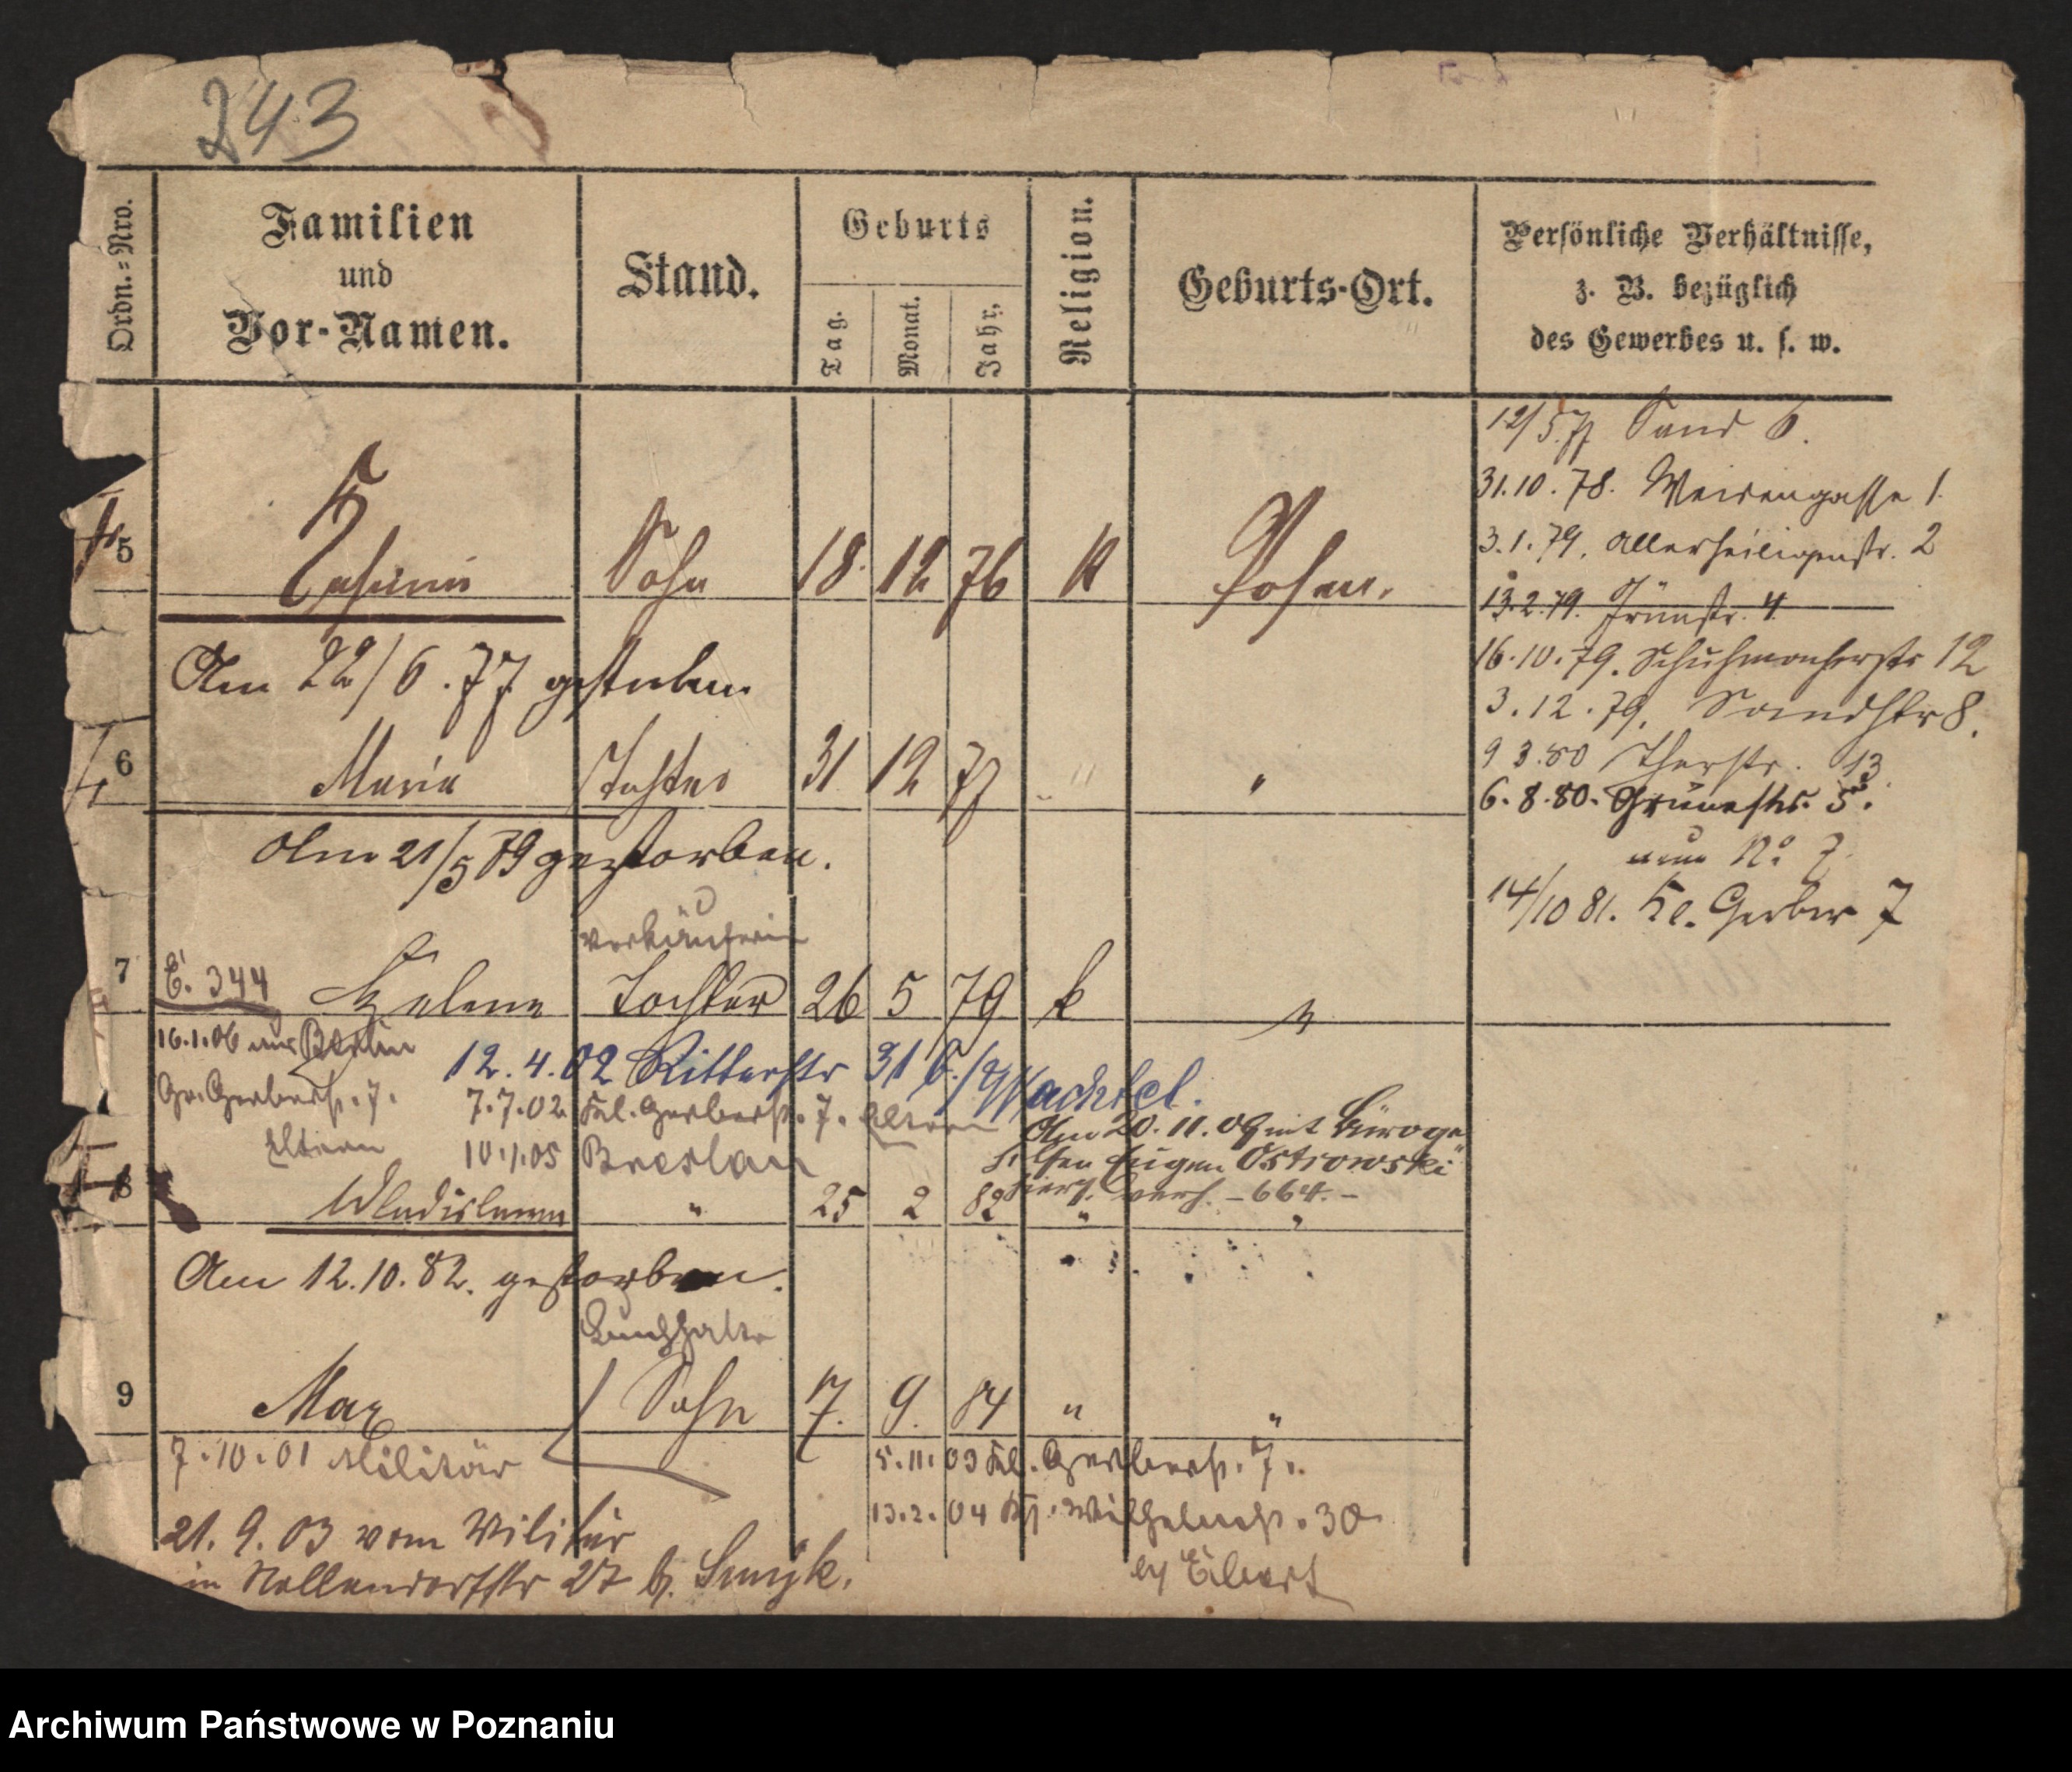 243
Ordn.=Nro.
Familien
und
Vor-Namen.
Stand.
Geburts
Tag.
Monat.
Jahr.
Religion.
Geburts-Ort.
Persönliche Verhältnisse,
z. B. bezüglich
des Gewerbes u. s. w.
12/5.77 Sand 6.
31.10.78. Waisengasse 1.
3.1.79. Allerheiligenstr. 2
13.2.79. 4.
16.10.79. Schuhmacherstr 12
3.12.79. Sandstr 8.
9 3.80 13
6.8.80. Grünestr. 5.
nun No 7.
14/10 81. Kl. Gerber 7
5 Casimir Sohn 18. 12 76 K Posen.
Am 22/6.77 gestorben.
6 Maria Tochter 31 12 77 " "
Am 21/5 89 gestorben.
Verkäuferin
7 E. 344 Helene Tochter 26 5 79 k "
16.1.06 aus Berlin
12.4.02 Ritterstr 31 b./Wachtel.
Gr. Gerberstr. 7.
7.7.02 Kl. Gerberstr. 7. Eltern
Am 20.11.09 mit Büroge
Eltern
10.1.05 Breslau
hilfen Eugen Ostrowski
hier verh. - 664. -
8 Wladislawa " 25 2 82 " "
Am 12.10.82. gestorben.
Buchhalter
9 Max Sohn 7. 9. 84 " "
7.10.01 Militär
5.11.03 Kl. Gerberstr. 7.
21.9.03 vom Militär
13.2.04 Wilhelmstr. 30
in Nollendorfstr 27 b.
Archiwum Państwowe w Poznaniu